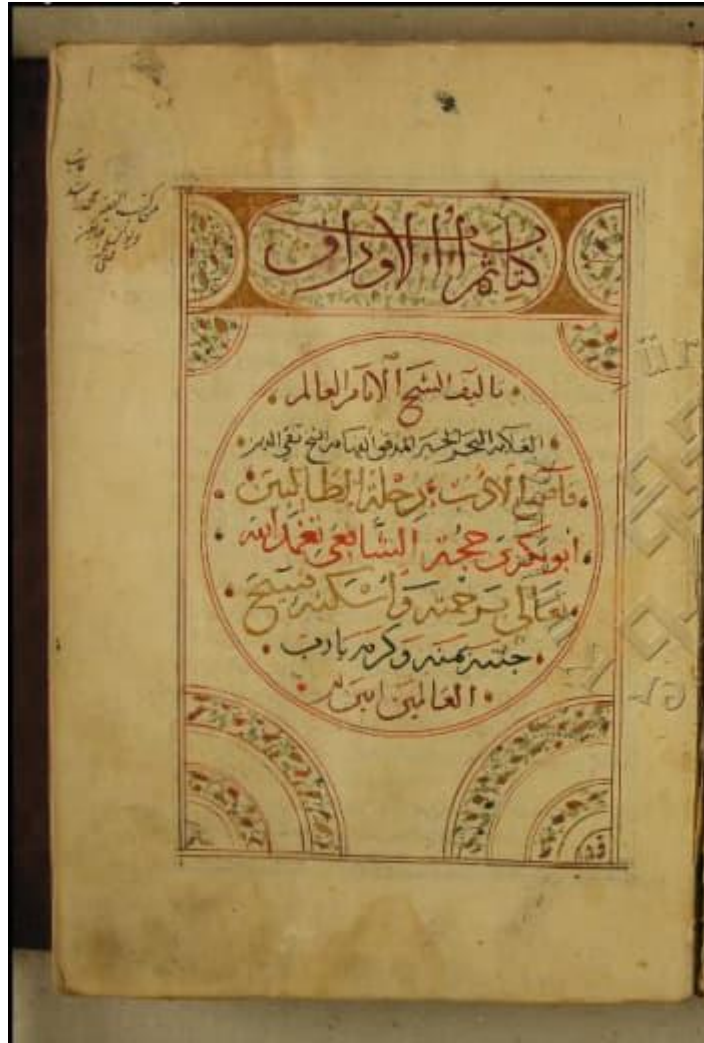 كتاب ثمرات الاوراق
تاليف الشيخ الامام العالم
العلامه البحر الفهامه الشيخ تقي الدين
قاضي الادب رحلة الطالبين
ابو بكر بن حجة الشافعي تغمد الله
تعالى برحمته واسكنه فسيح
جنته بمنه وكرمه يا رب
العالمين امين